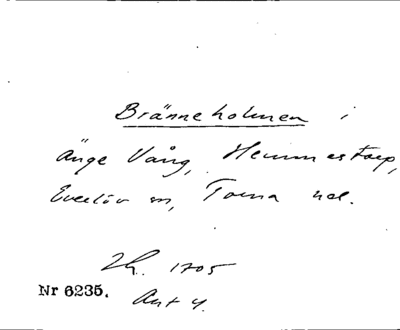 Bränneholmen i
Änge Vång, Hemmestorp,
Everlöv sn, Torna hd.
Lh. 1705
Nr 6235. Ant 4.